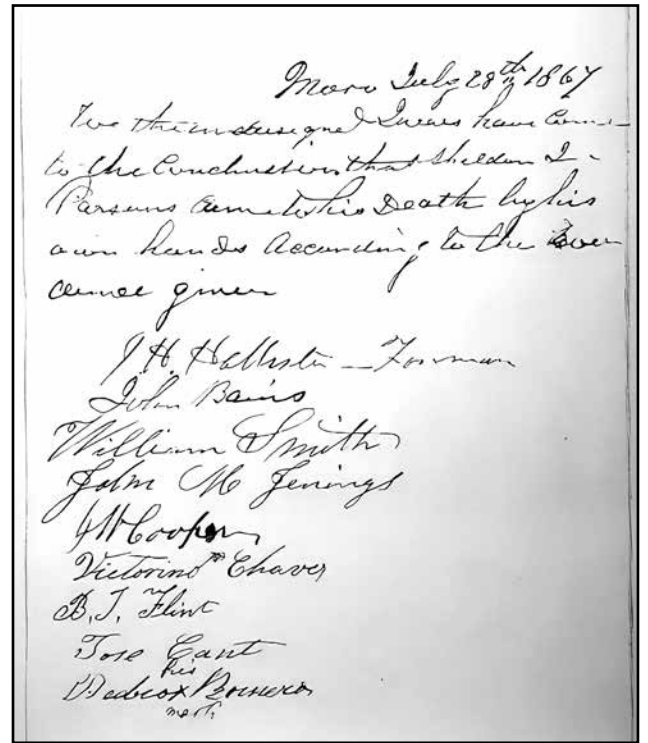 Mora July 28th 1867
We the undersigned Jurors have Come
to the Conclustion that Sheldon
Parsons came to his Death by his
own hands According to the
given
J H Hollister — Forman
John Bains
William Smith
John M Jenings
Cooper
Victorino Chaves
B. J. Flint
Jose Cant
his
x Romero
mark